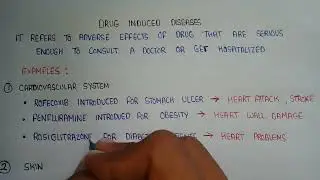 DRUG INDUCED DISEASES
IT REFERS TO ADVERSE EFFECTS OF DRUG THAT ARE SERIOUS
ENOUGH TO CONSULT A DOCTOR OR GET HOSPITALIZED
EXAMPLES :
① CARDIOVASCULAR SYSTEM
• ROFECOXIB INTRODUCED FOR STOMACH ULCER → HEART ATTACK, STROKE
• FENFLURAMINE INTRODUED FOR OBESITY → HEART WALL DAMAGE
• ROSIGLITRAZONE FOR → HEART PROBLEMS
② SKIN